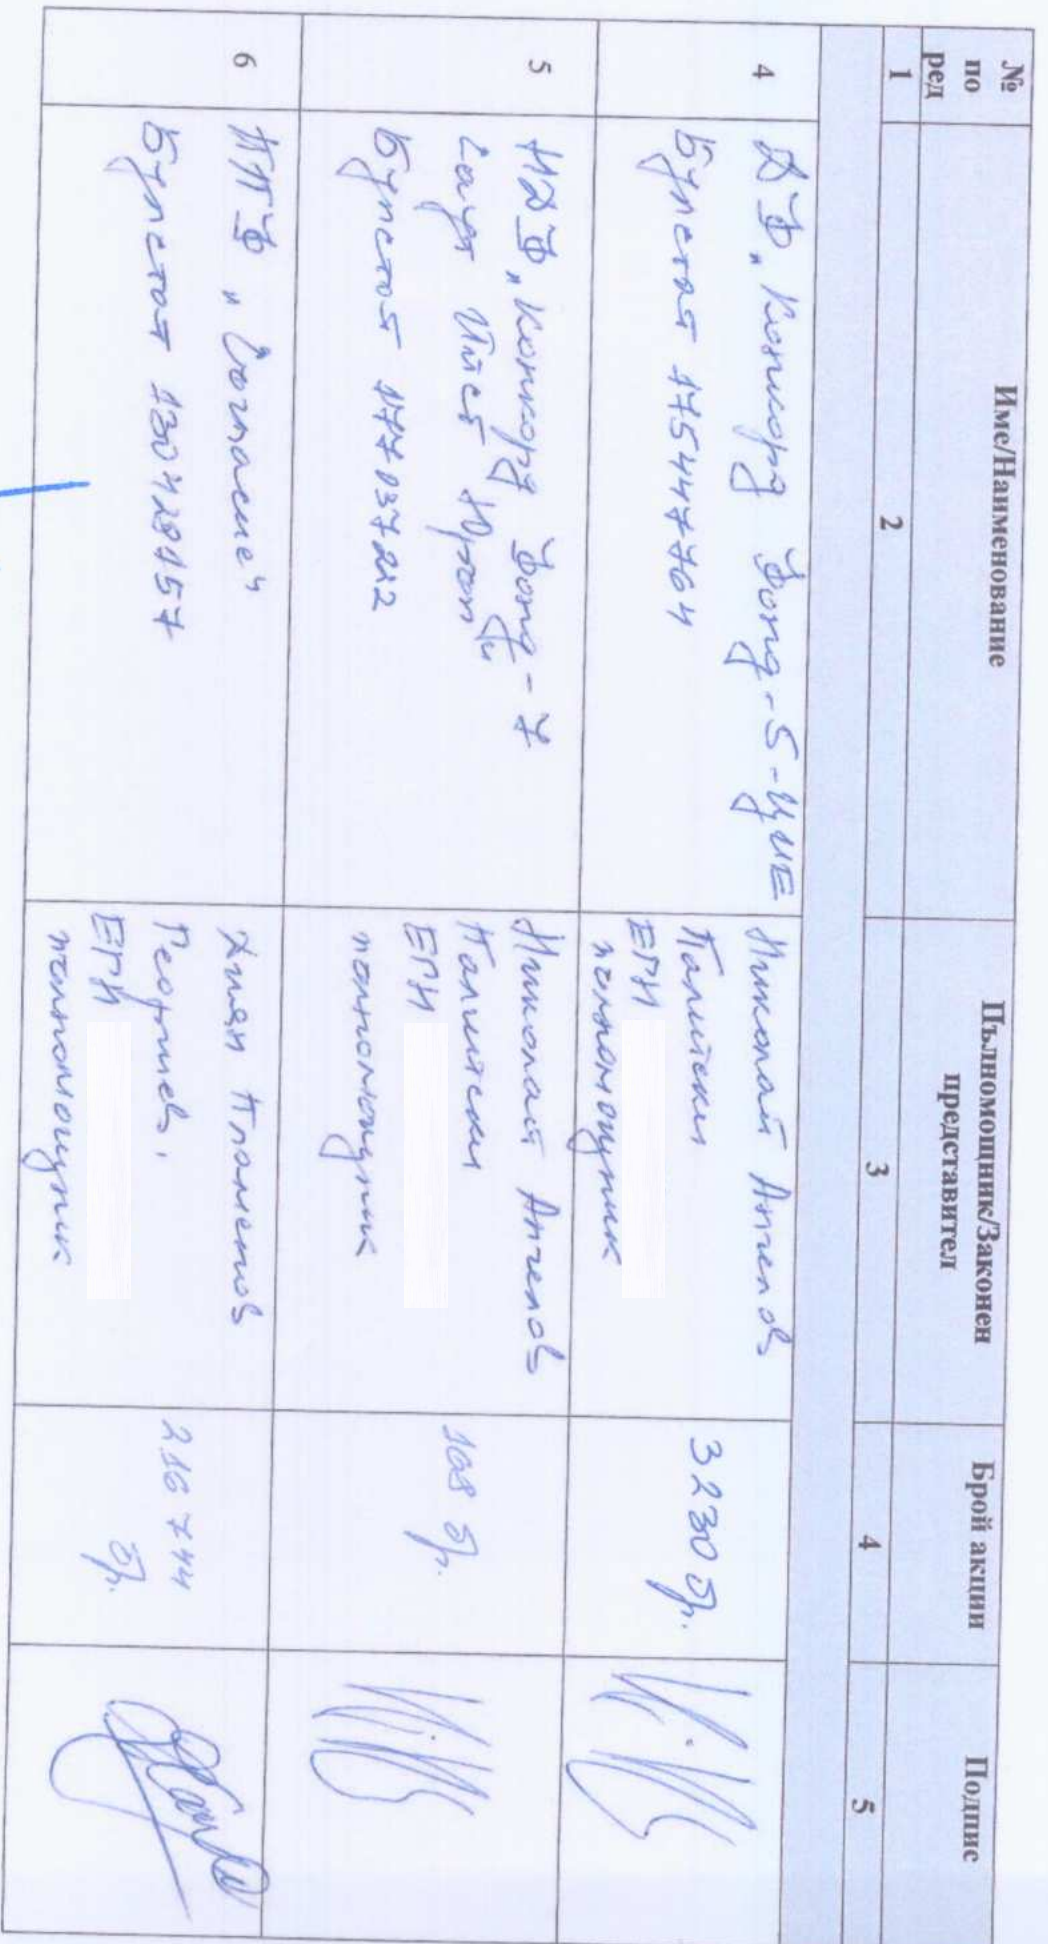 № по ред
Име/Наименование
Пълномощник/Законен представител
Брой акции
Подпис
1
2
3
4
5
4
ДФ „Конкорд Фонд-5-ЦИЕ
Булстат 175447764
Николай Ангелов
Папитски
ЕГН
пълномощник
3230 бр.
5
НДФ „Конкорд Фонд-7
Саут Ийст Юръп"
Булстат 177037242
Николай Ангелов
Папитски
ЕГН
пълномощник
108 бр.
6
ППФ „Съгласие"
Булстат 130429157
Диян Пламенов
Георгиев,
ЕГН
пълномощник
216 744
бр.